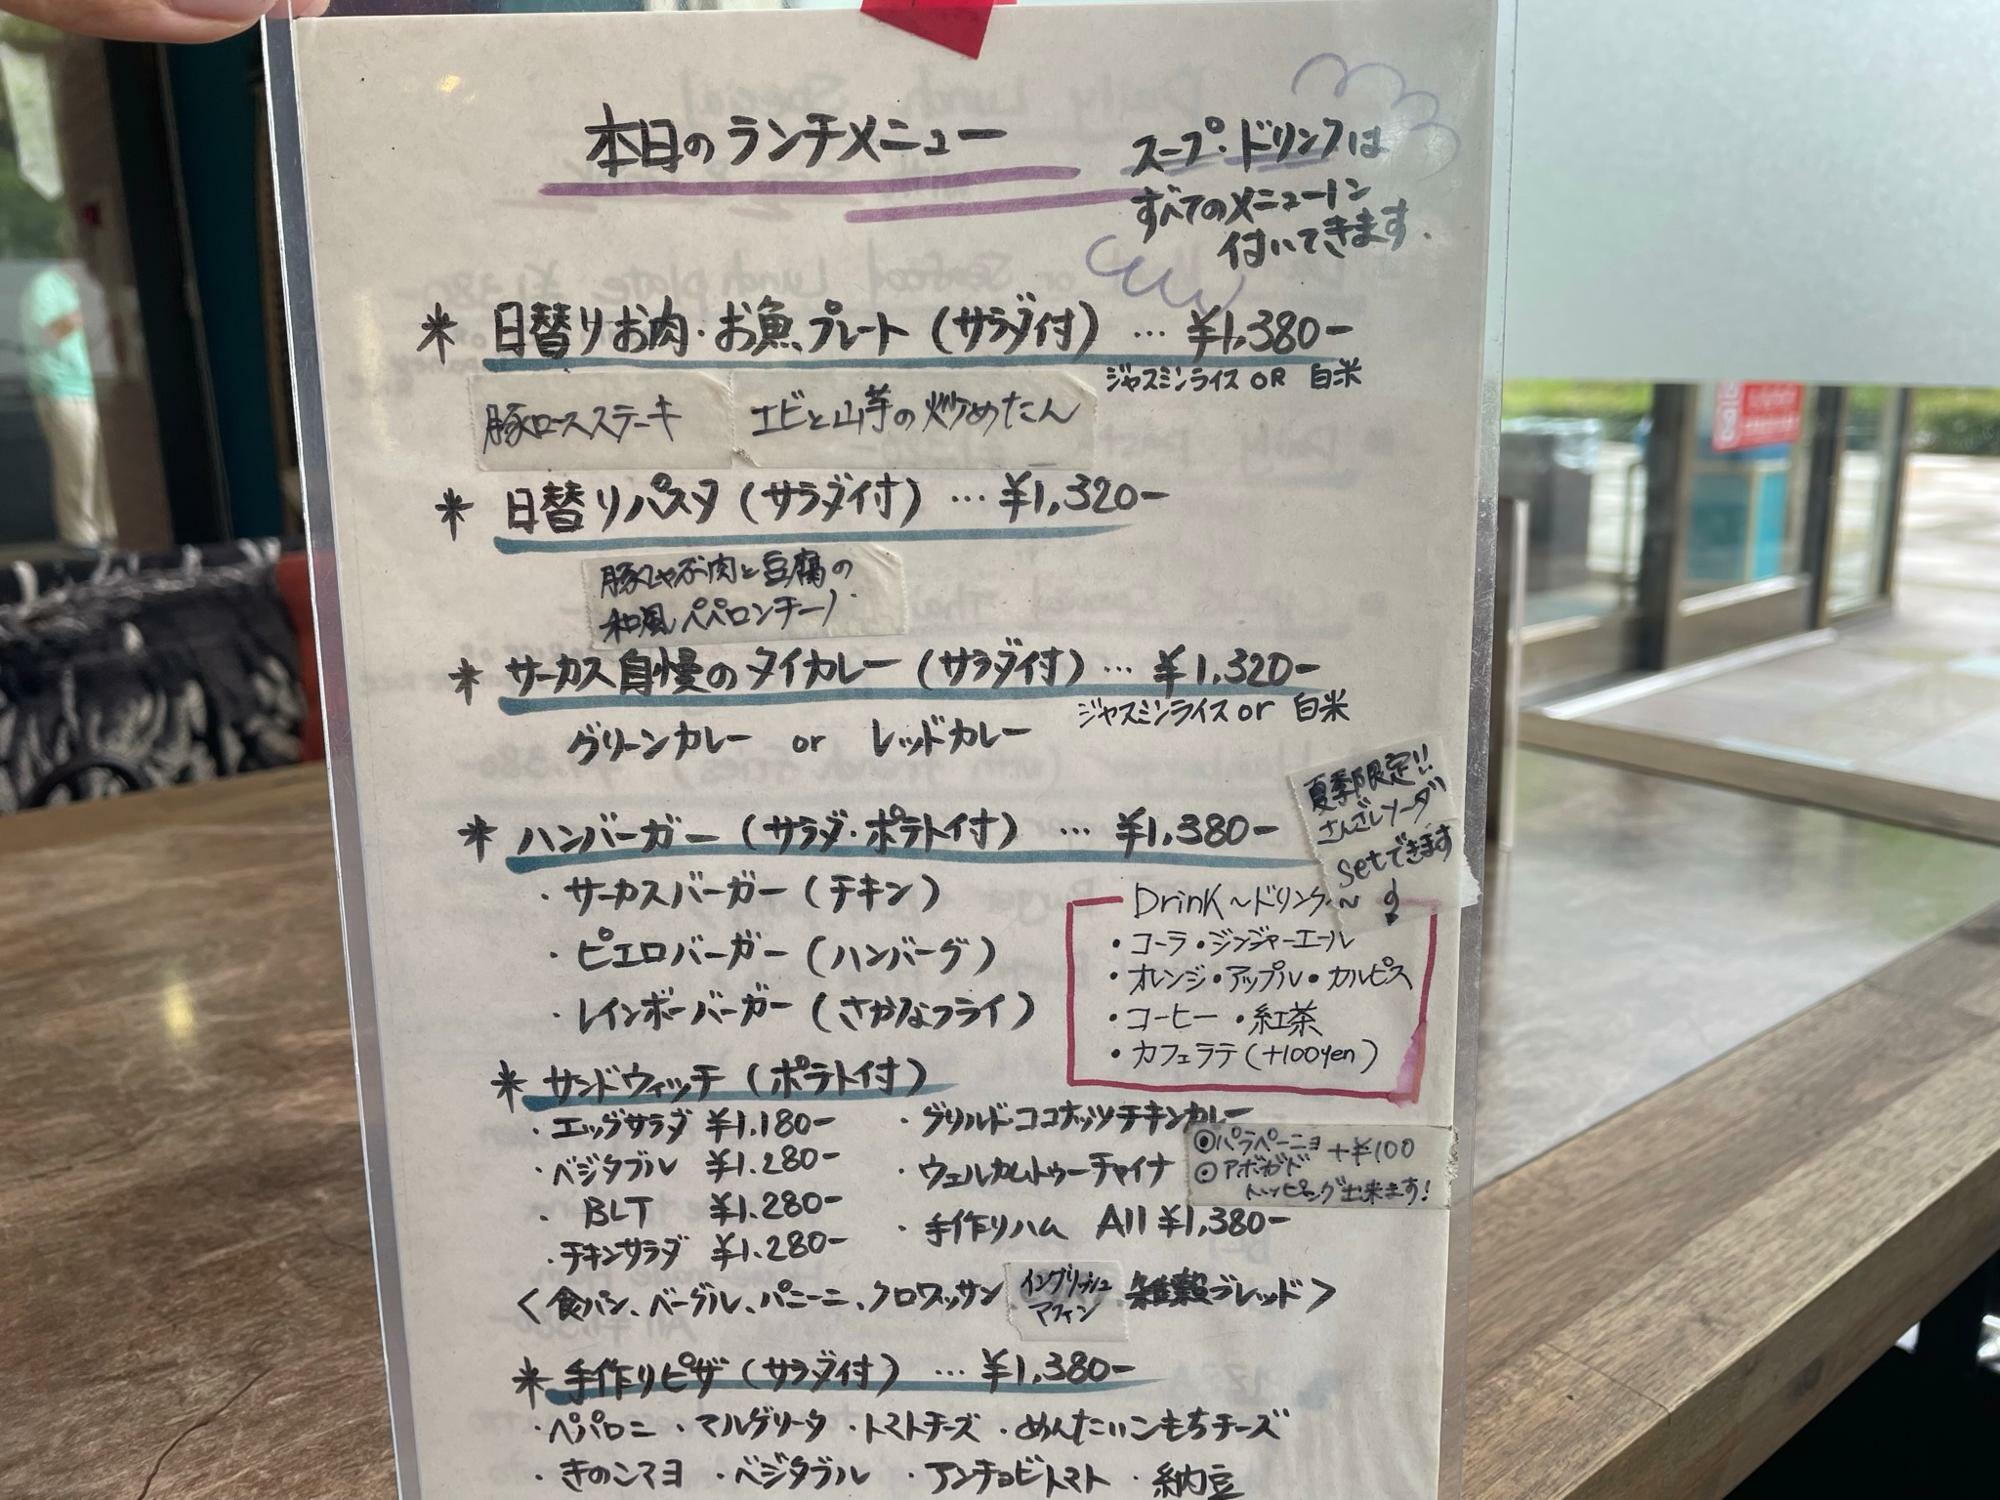 本日のランチメニュー
スープ・ドリンクは
すべてのメニューに
付いてきます.
* 日替りお肉・お魚プレート (サラダ付) … ¥1,380-
ジャスミンライス OR 白米
豚ロースステーキ
エビと山芋の炒めたん
* 日替りパスタ (サラダ付) … ¥1,320-
豚しゃぶ肉と豆腐の
和風ペペロンチーノ
* サーカス自慢のタイカレー (サラダ付) … ¥1,320-
ジャスミンライス or 白米
グリーンカレー or レッドカレー
* ハンバーガー (サラダ・ポテト付) … ¥1,380-
・サーカスバーガー (チキン)
・ピエロバーガー (ハンバーグ)
・レインボーバーガー (さかなフライ)
夏季限定!!
さんごしソーダ
Setできます
Drink ~ドリンク~
・コーラ・ジンジャーエール
・オレンジ・アップル・カルピス
・コーヒー ・紅茶
・カフェラテ (+100yen)
* サンドウィッチ (ポテト付)
・エッグサラダ ¥1.180-
・ベジタブル ¥1.280-
・BLT ¥1.280-
・チキンサラダ ¥1.280-
・グリルド・ココナッツチキンカレー
・ウェルカムトゥーチャイナ
・手作りハム All ¥1,380-
◎ハラペーニョ +¥100
◎アボガド
トッピング出来ます!
<食パン、ベーグル、パニーニ、クロワッサン イングリッシュマフィン、雑穀ブレッド>
* 手作りピザ (サラダ付) … ¥1,380-
・ペパロニ ・マルゲリータ ・トマトチーズ ・めんたいこもちチーズ
・きのこマヨ ・ベジタブル ・アンチョビトマト ・納豆